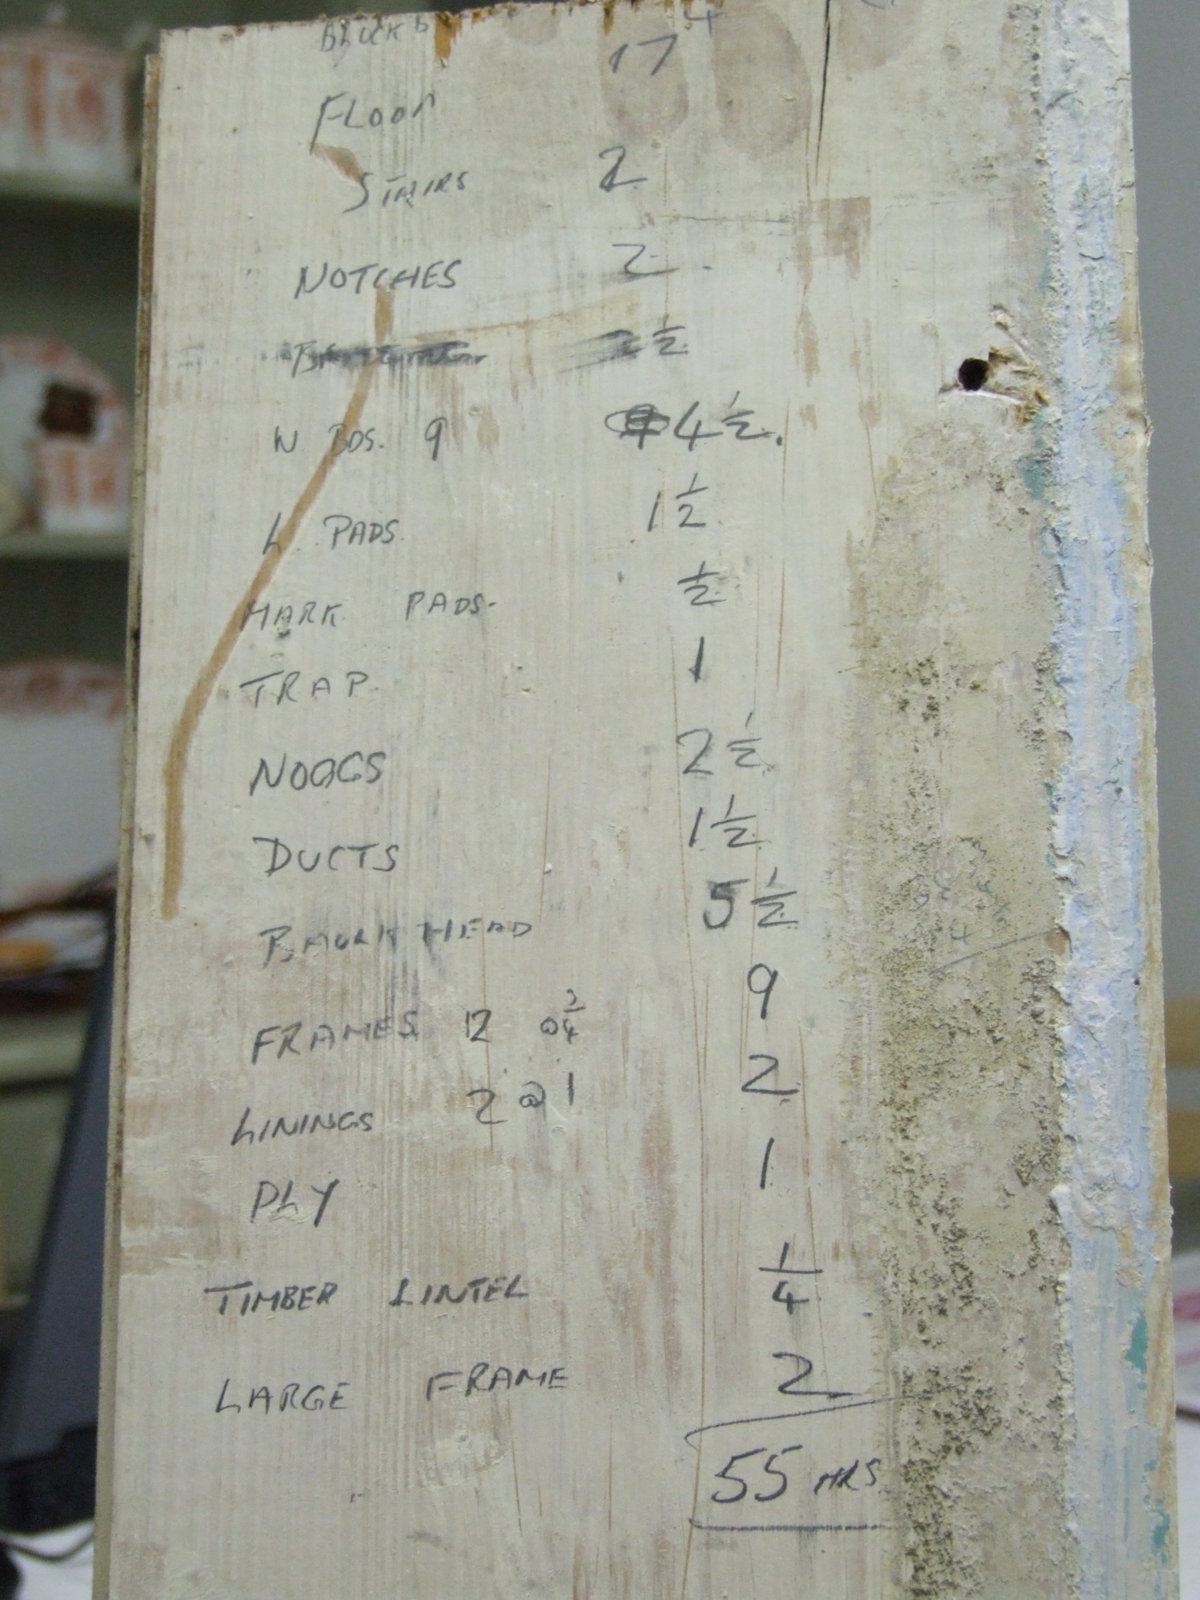 BLOCKS 4
FLOOR 17
STAIRS 2
NOTCHES 2
½
W BDS. 9 4½.
L. PADS. 1½
MARK PADS- ½
TRAP. 1
NOGGS 2½
DUCTS 1½
HEAD 5½
FRAMES 12 @ ¾ 9
LININGS 2 @ 1 2
PLY 1
TIMBER LINTEL ¼
LARGE FRAME 2
55 HRS